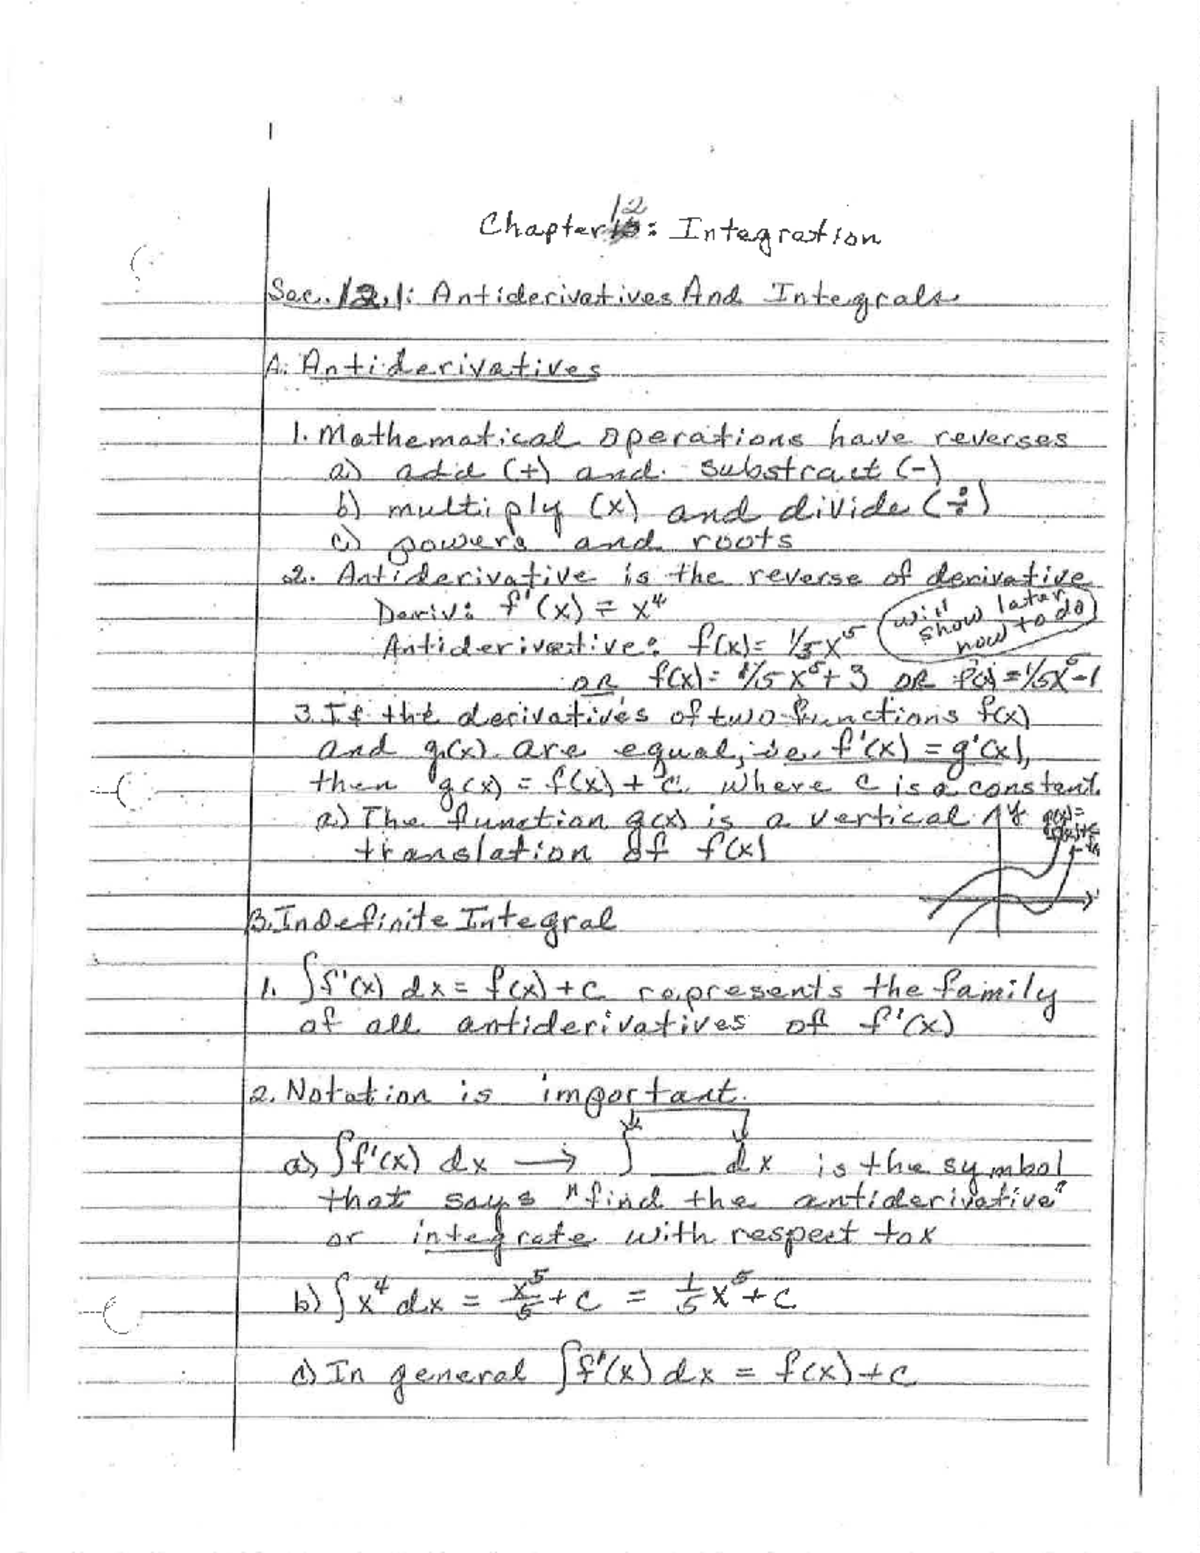 Chapter 12: Integration
Sec. 12.1: Antiderivatives And Integrals
A. Antiderivatives
1. Mathematical operations have reverses
a) add (+) and substract (-)
b) multiply (x) and divide (÷)
c) powers and roots
2. Antiderivative is the reverse of derivative
Deriv: f'(x) = x⁴
Antiderivative: f(x) = 1/5x⁵ (will show later how to do)
OR f(x) = 1/5 x⁵ + 3 OR f(x) = 1/5x⁵ - 1
3. If the derivatives of two functions f(x)
and g(x) are equal, i.e. f'(x) = g'(x),
then g(x) = f(x) + C, where C is a constant.
a) The function g(x) is a vertical
translation of f(x)
y g(x)=
B. Indefinite Integral
1. ∫f'(x) dx = f(x) + C represents the family
of all antiderivatives of f'(x)
2. Notation is important.
a) ∫f'(x) dx → ∫ ___ dx is the symbol
that says "find the antiderivative"
or integrate with respect to x
b) ∫x⁴ dx = x⁵/5 + C = 1/5 x⁵ + C
c) In general ∫f'(x) dx = f(x) + C